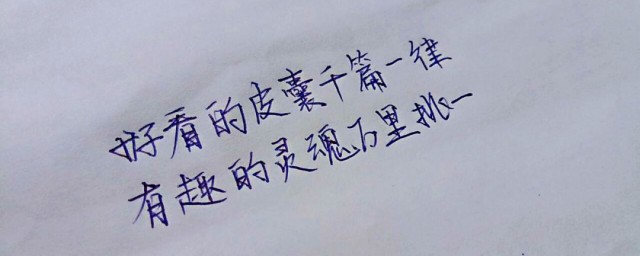 好看的皮囊千篇一律
有趣的灵魂万里挑一